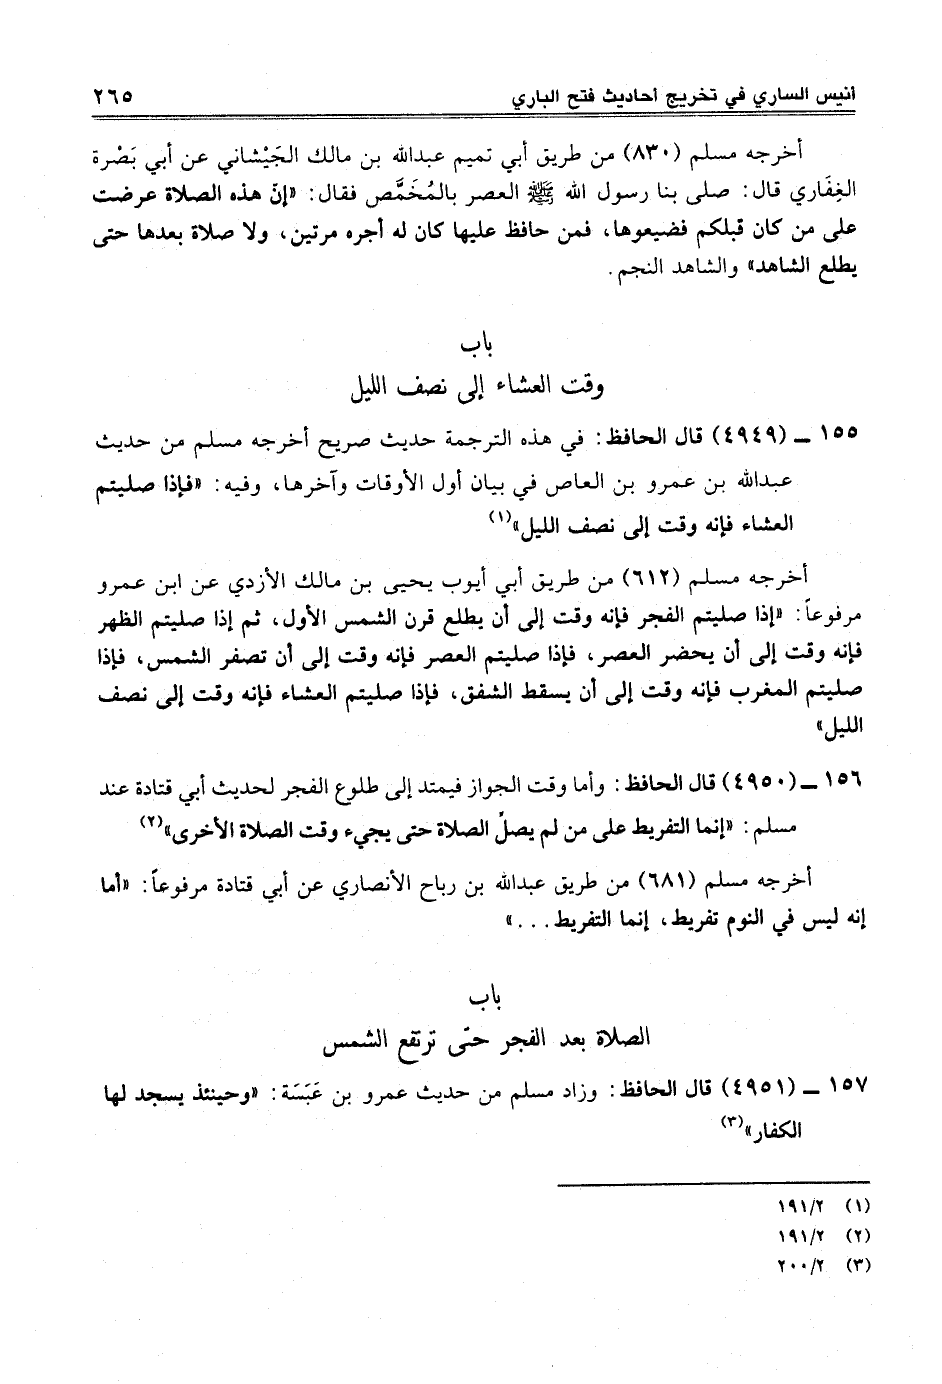 أنيس الساري في تخريج أحاديث فتح الباري ٢٦٥
أخرجه مسلم (٨٣٠) من طريق أبي تميم عبدالله بن مالك الجَيْشاني عن أبي بَصْرة
الغِفَاري قال: صلى بنا رسول الله ﷺ العصر بالمُخَمَّص فقال: «إنّ هذه الصلاة عرضت
على من كان قبلكم فضيعوها، فمن حافظ عليها كان له أجره مرتين، ولا صلاة بعدها حتى
يطلع الشاهد» والشاهد النجم.
باب
وقت العشاء إلى نصف الليل
١٥٥ ـ (٤٩٤٩) قال الحافظ: في هذه الترجمة حديث صريح أخرجه مسلم من حديث
عبدالله بن عمرو بن العاص في بيان أول الأوقات وآخرها، وفيه: «فإذا صليتم
العشاء فإنه وقت إلى نصف الليل»(١)
أخرجه مسلم (٦١٢) من طريق أبي أيوب يحيى بن مالك الأزدي عن ابن عمرو
مرفوعاً: «إذا صليتم الفجر فإنه وقت إلى أن يطلع قرن الشمس الأول، ثم إذا صليتم الظهر
فإنه وقت إلى أن يحضر العصر، فإذا صليتم العصر فإنه وقت إلى أن تصفر الشمس، فإذا
صليتم المغرب فإنه وقت إلى أن يسقط الشفق، فإذا صليتم العشاء فإنه وقت إلى نصف
الليل»
١٥٦ ـ (٤٩٥٠) قال الحافظ: وأما وقت الجواز فيمتد إلى طلوع الفجر لحديث أبي قتادة عند
مسلم: «إنما التفريط على من لم يصلِّ الصلاة حتى يجيء وقت الصلاة الأخرى»(٢)
أخرجه مسلم (٦٨١) من طريق عبدالله بن رباح الأنصاري عن أبي قتادة مرفوعاً: «أما
إنه ليس في النوم تفريط، إنما التفريط...»
باب
الصلاة بعد الفجر حتّى ترتفع الشمس
١٥٧ ـ (٤٩٥١) قال الحافظ: وزاد مسلم من حديث عمرو بن عَبَسَة: «وحينئذ يسجد لها
الكفار»(٣)
(١) ١٩١/٢
(٢) ١٩١/٢
(٣) ٢٠٠/٢